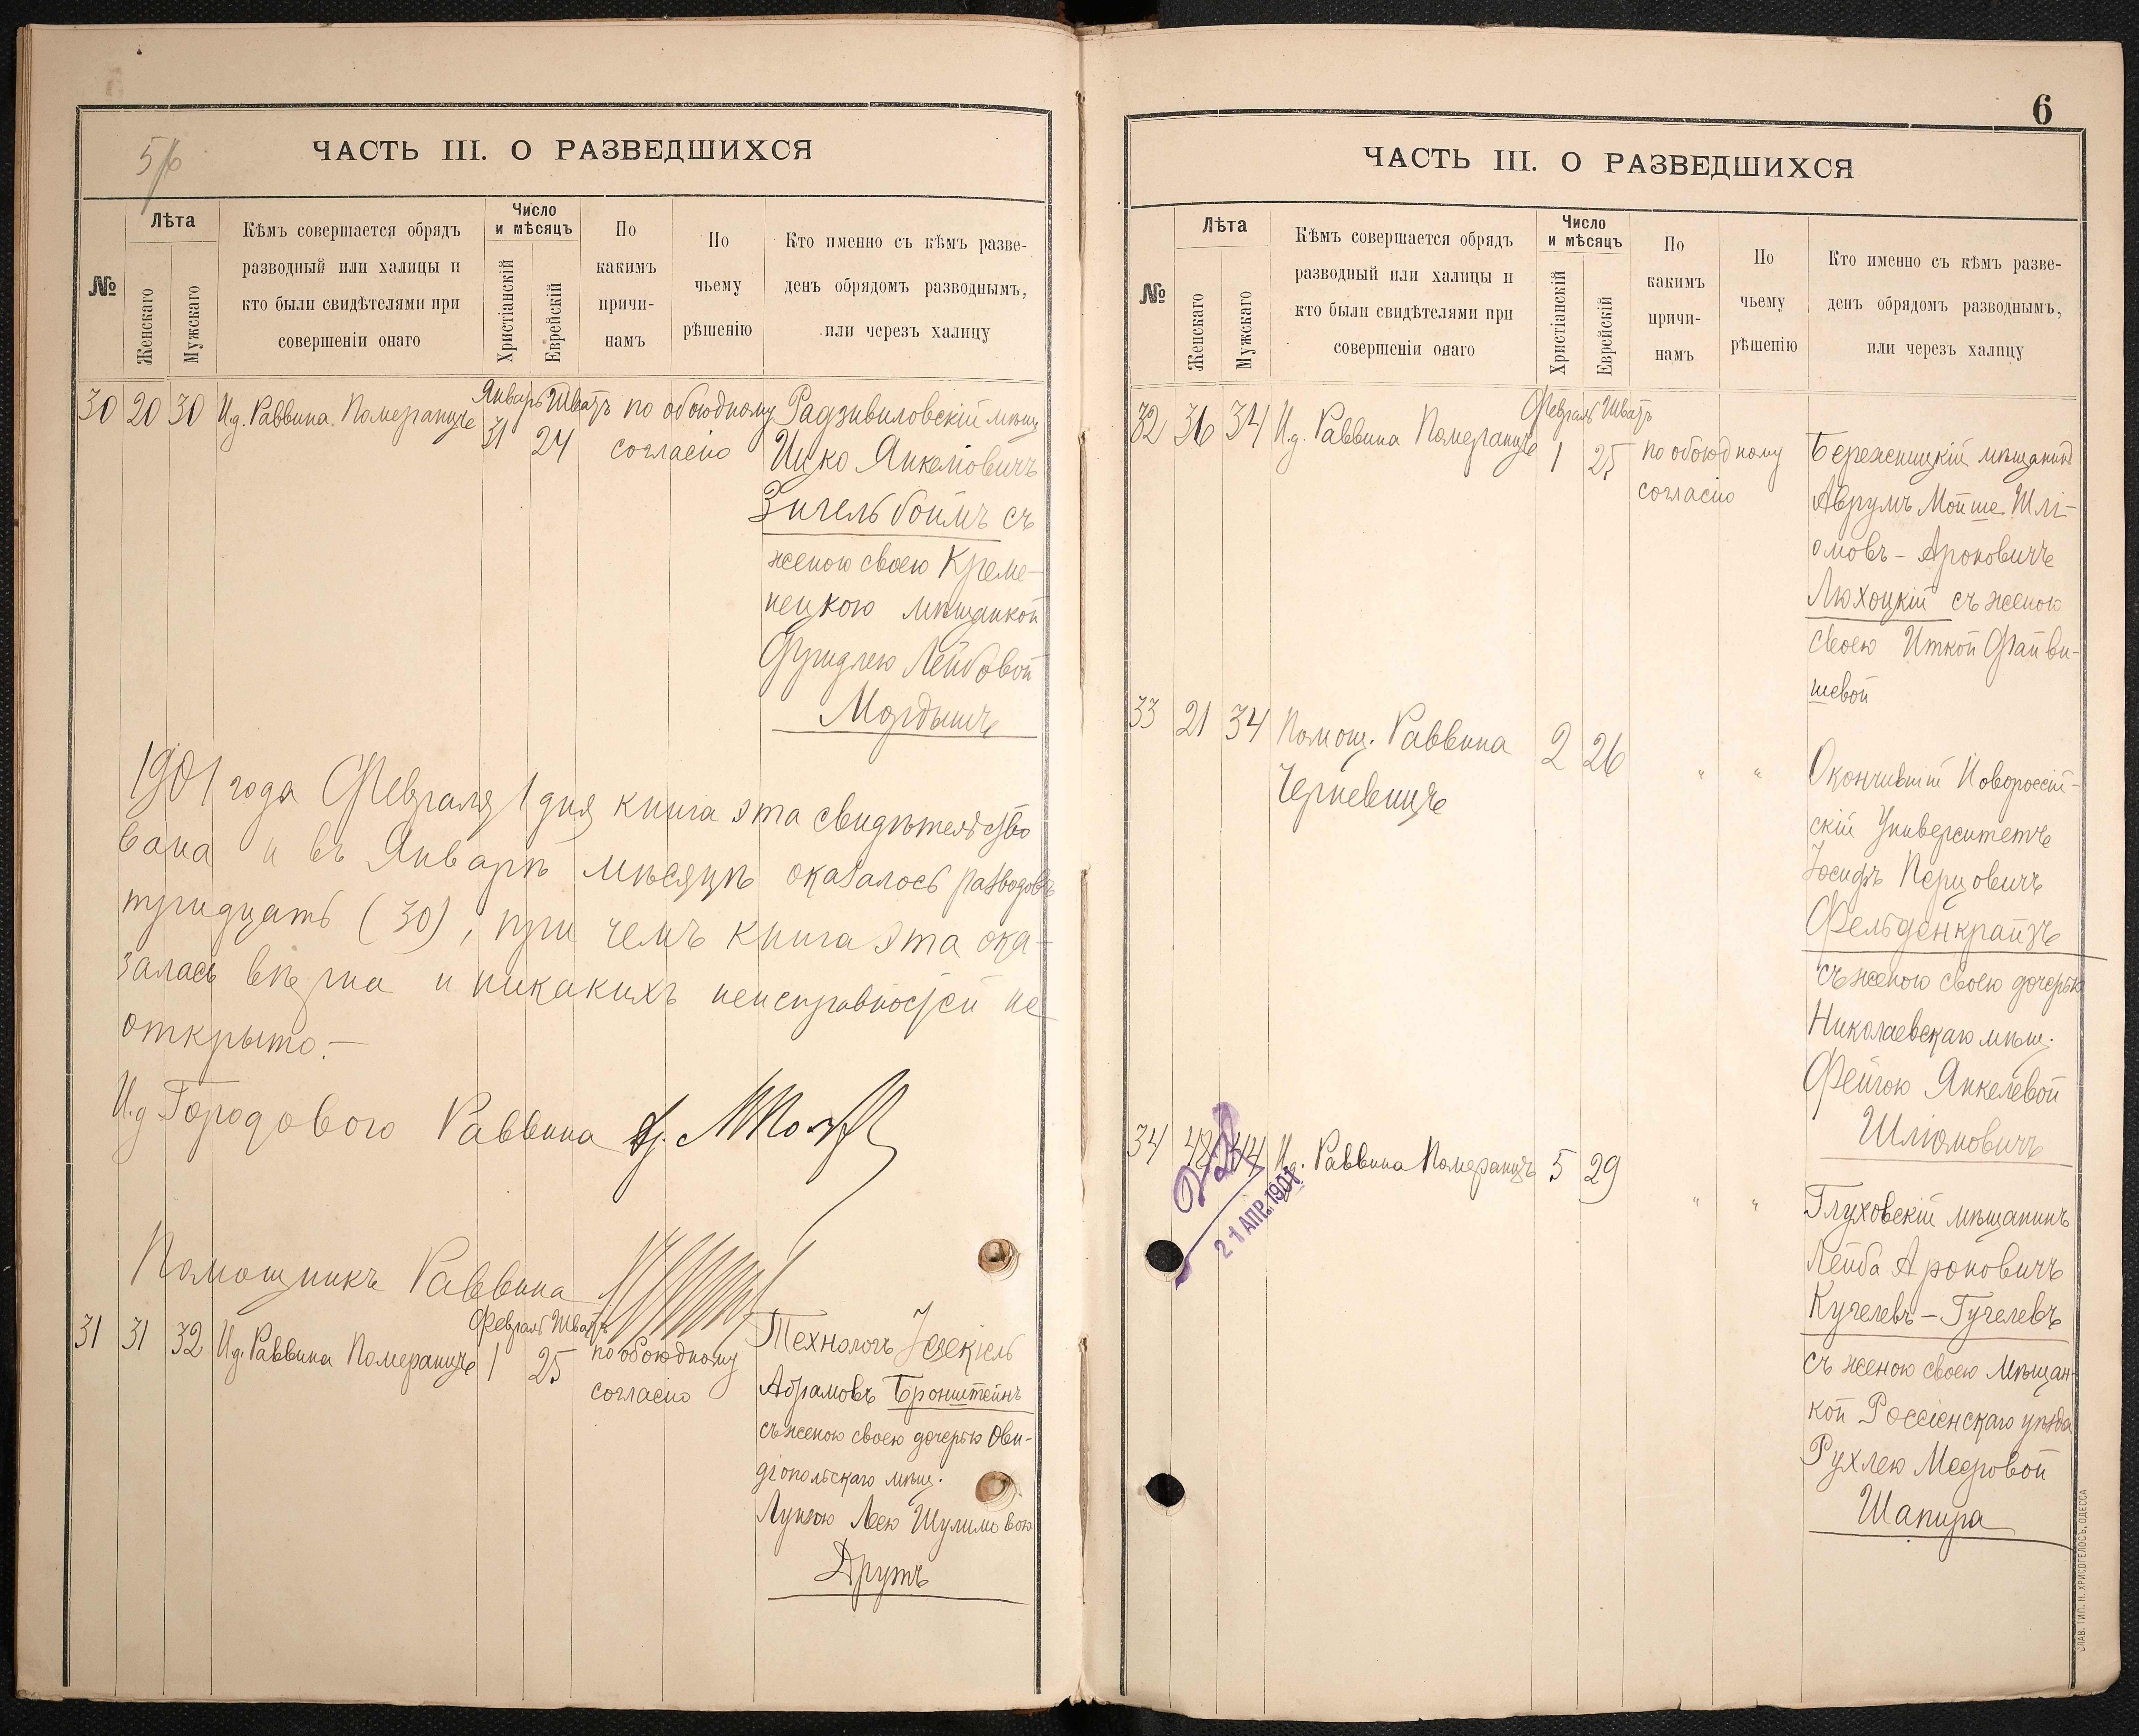 ЧАСТЬ III. О РАЗВЕДШИХСЯ
№
Лѣта
Женскаго
Мужскаго
Кѣмъ совершается обрядъ
разводный или халицы и
кто были свидѣтелями при
совершеніи онаго
Число
и мѣсяцъ
Христіанскій
Еврейскій
По
какимъ
причи-
намъ
По
чьему
рѣшенію
Кто именно съ кѣмъ разве-
денъ обрядомъ разводнымъ,
или черезъ халицу
30 20 30 И.д. Раввина Померанцъ
Январь Шватъ
31 24
по обоюдному
согласію
Радзивиловскій мѣщ
Ицко Янкелевичъ
Зигельбоймъ съ
женою своею Креме-
нецкою мѣщанкой
Фридлею Лейбовой
Мордышъ
1901 года Февраля 1 дня книга эта свидѣтельство
вана и въ Январѣ мѣсяцѣ оказалось разводовъ
тридцать (30), при чемъ книга эта ока-
залась вѣрна и никакихъ неисправностей не
открыто.—
И.д. Городового Раввина
Помощникъ Раввина
31 31 32 И.д. Раввина Померанцъ
Февраль Шватъ
1 25
по обоюдному
согласію
Технологъ Іезекіель
Абрамовъ Бронштейнъ
съ женою своею дочерью Ови-
діопольскаго мѣщ.
Леею Шулимовою
Друтъ
6
ЧАСТЬ III. О РАЗВЕДШИХСЯ
№
Лѣта
Женскаго
Мужскаго
Кѣмъ совершается обрядъ
разводный или халицы и
кто были свидѣтелями при
совершеніи онаго
Число
и мѣсяцъ
Христіанскій
Еврейскій
По
какимъ
причи-
намъ
По
чьему
рѣшенію
Кто именно съ кѣмъ разве-
денъ обрядомъ разводнымъ,
или черезъ халицу
32 36 34 И.д. Раввина Померанцъ
Февраль Шватъ
1 25
по обоюдному
согласію
Бережницкій мѣщанинъ
Аврумъ Мойше Шлі-
омовъ-Ароновичъ
Люхоцкій съ женою
своею Иткой Файви-
шевой
33 21 34 Помощ. Раввина
Черневицъ
2 26
" "
Окончившій Новороссій-
скій Университетъ
Іосифъ Перцовичъ
Фельденкрайзъ
съ женою своею дочерью
Николаевскаго мѣщ.
Фейгою Янкелевой
Шліомовичъ
34 48 44 И.д. Раввина Померанцъ 5 29
" "
21 АПР. 1901
Глуховскій мѣщанинъ
Лейба Ароновичъ
Кучелевъ-Гучелевъ
съ женою своею мѣщан-
кой Россіенскаго уѣзда
Рухлею Мееровой
Шапира
СЛАВ. ТИП. Н. ХРИСОГЕЛОСЪ, ОДЕССА